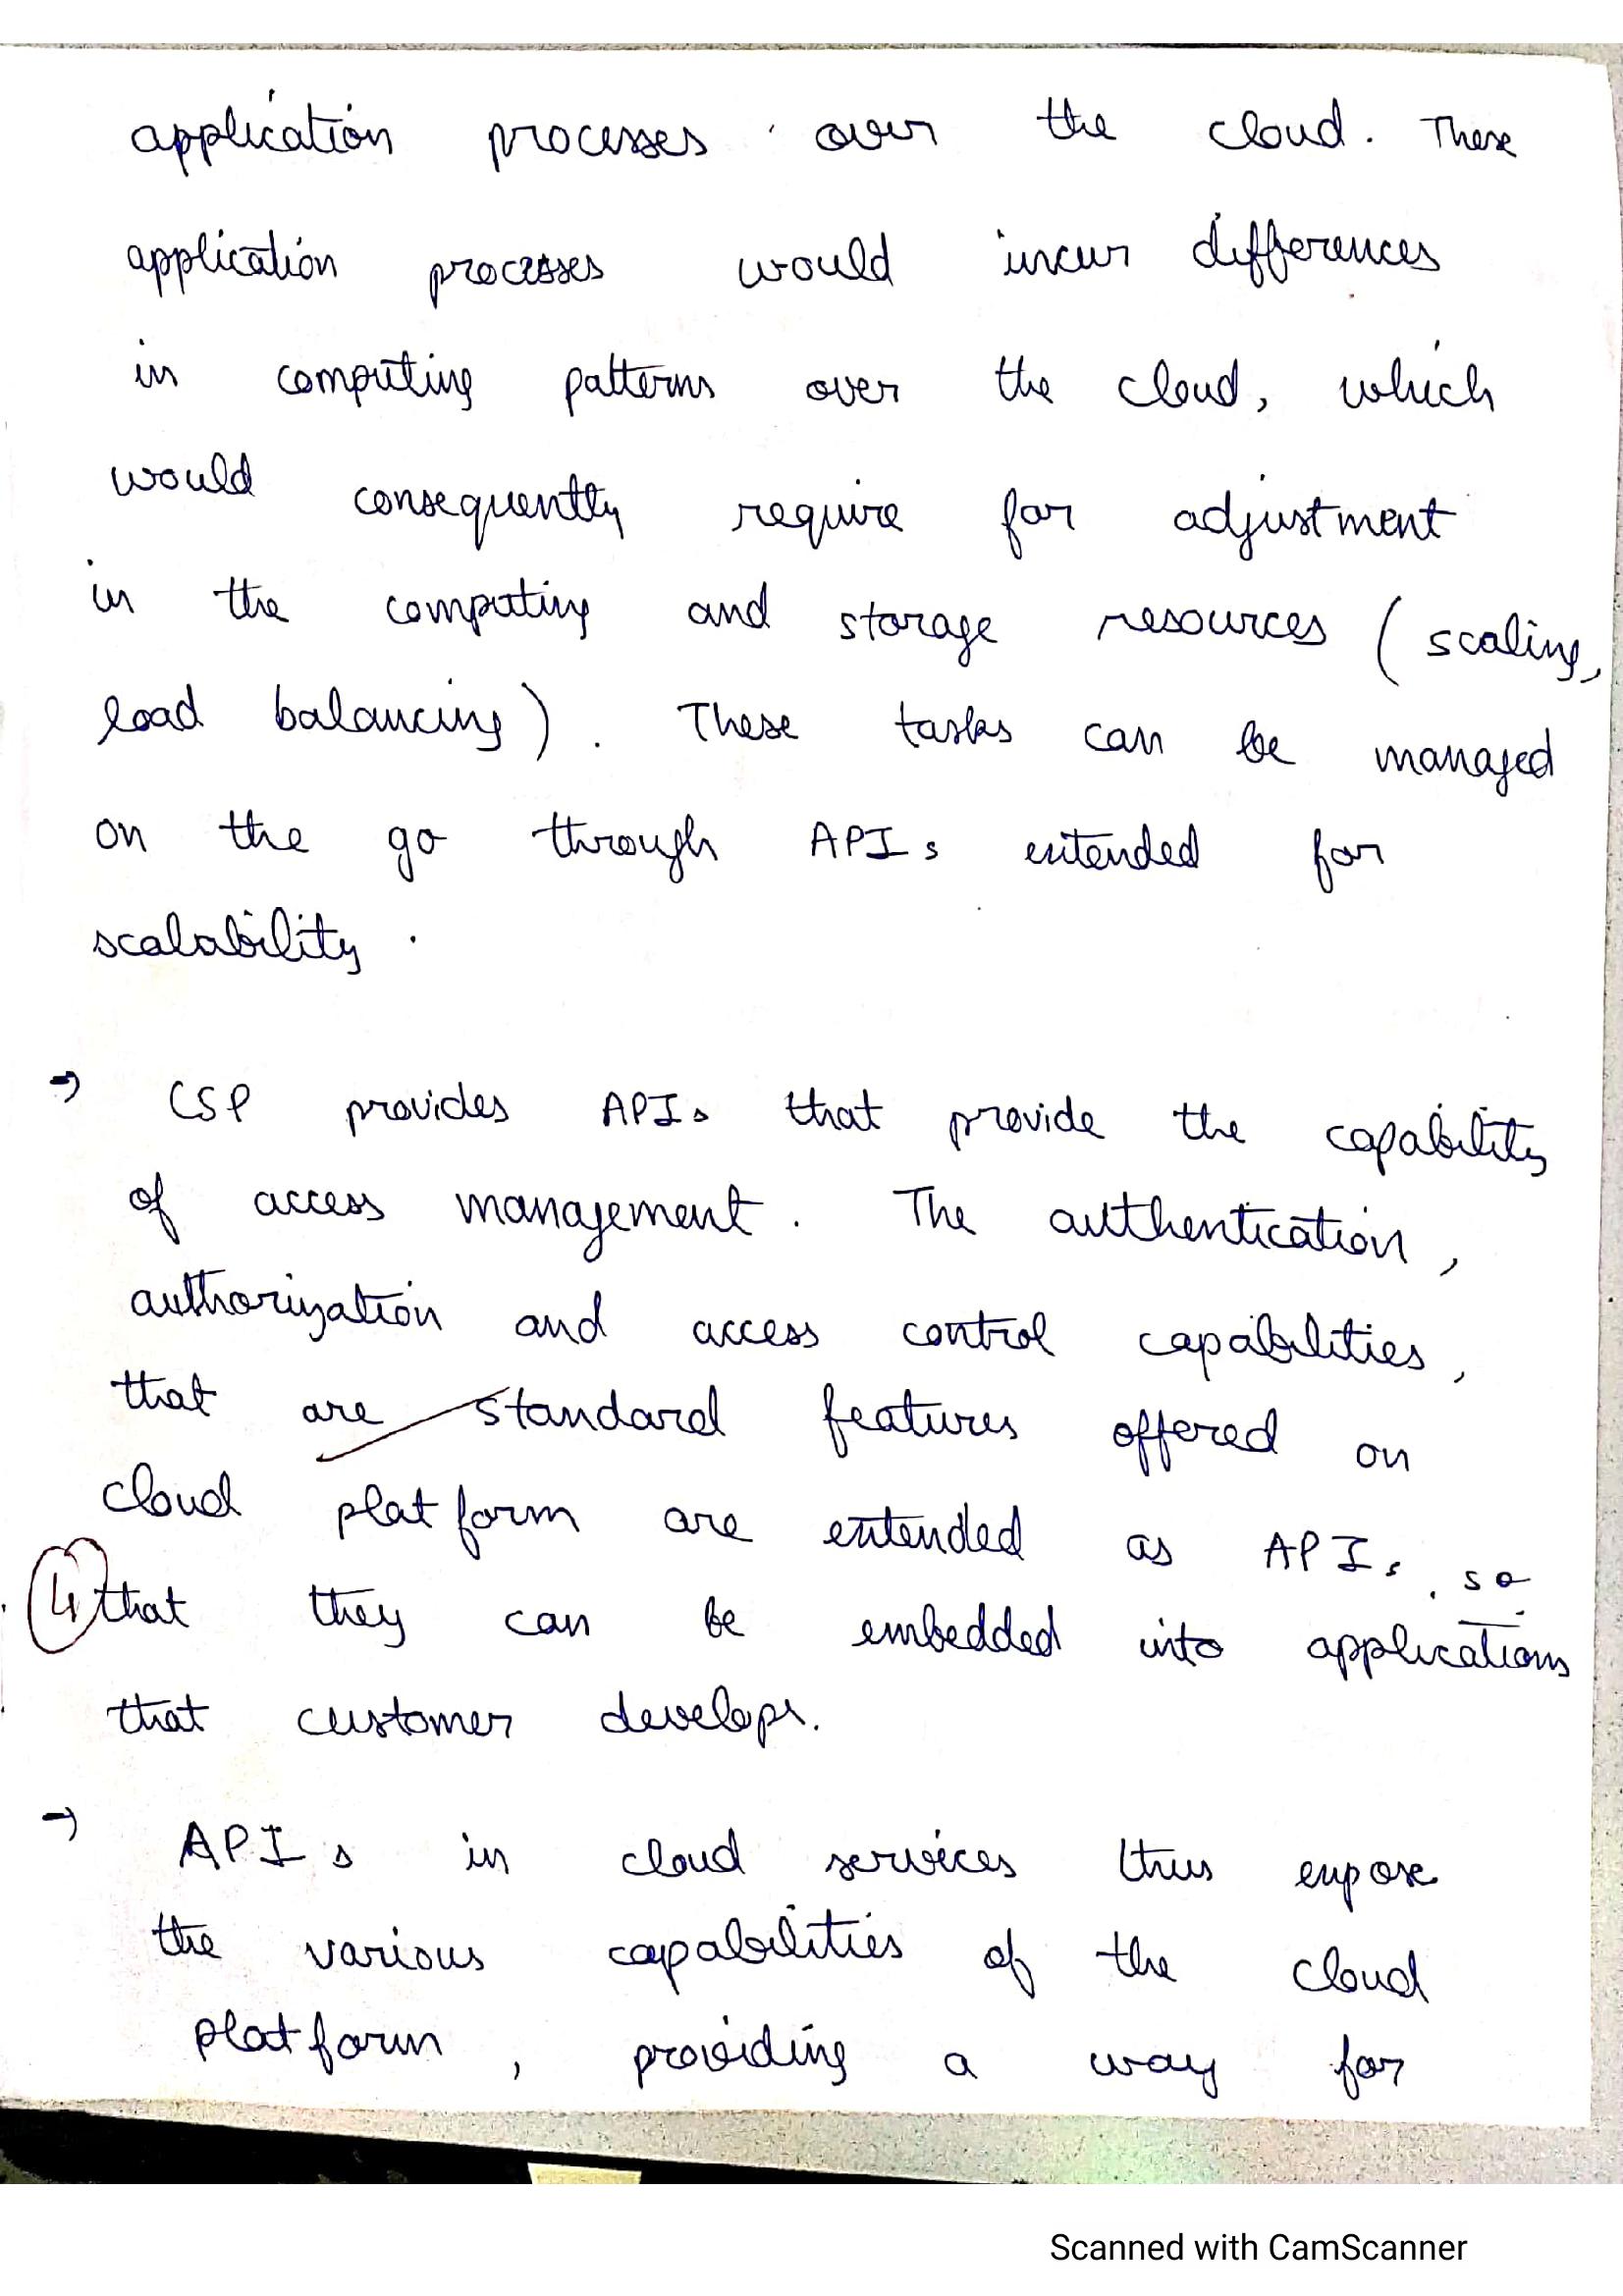 application processes over the cloud. These
application processes would incur differences
in computing patterns over the cloud, which
would consequently require for adjustment
in the computing and storage resources (scaling,
load balancing). These tasks can be managed
on the go through APIs extended for
scalability.
→ CSP provides APIs that provide the capability
of access management. The authentication,
authorization and access control capabilities,
that are standard features offered on
cloud platform are extended as APIs, so
4 that they can be embedded into applications
that customer develops.
→ APIs in cloud services thus expose
the various capabilities of the cloud
platform, providing a way for
Scanned with CamScanner